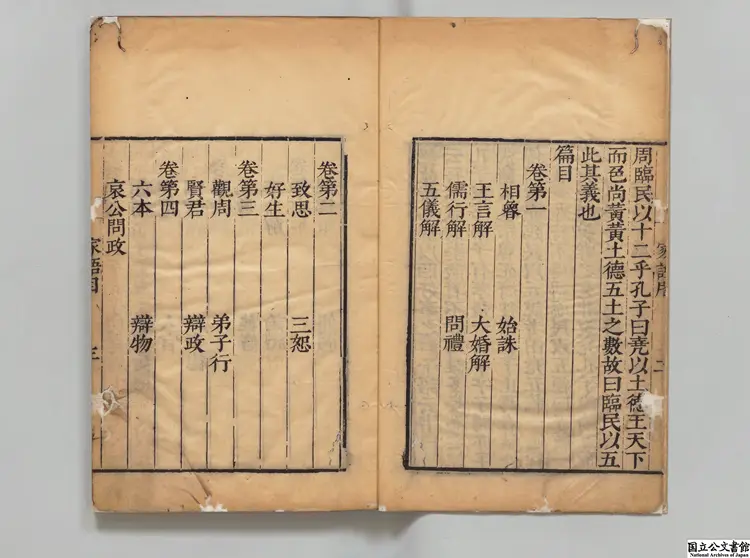 周臨民以十二乎孔子曰堯以土德王天下
而色尚黃黃土德五土之數故曰臨民以五
此其義也
篇目
卷第一
相魯 始誅
王言解 大婚解
儒行解 問禮
五儀解
卷第二
致思 三恕
好生
卷第三
觀周 弟子行
賢君 辯政
卷第四
六本 辯物
哀公問政
家語目
三
国立公文書館
National Archives of Japan